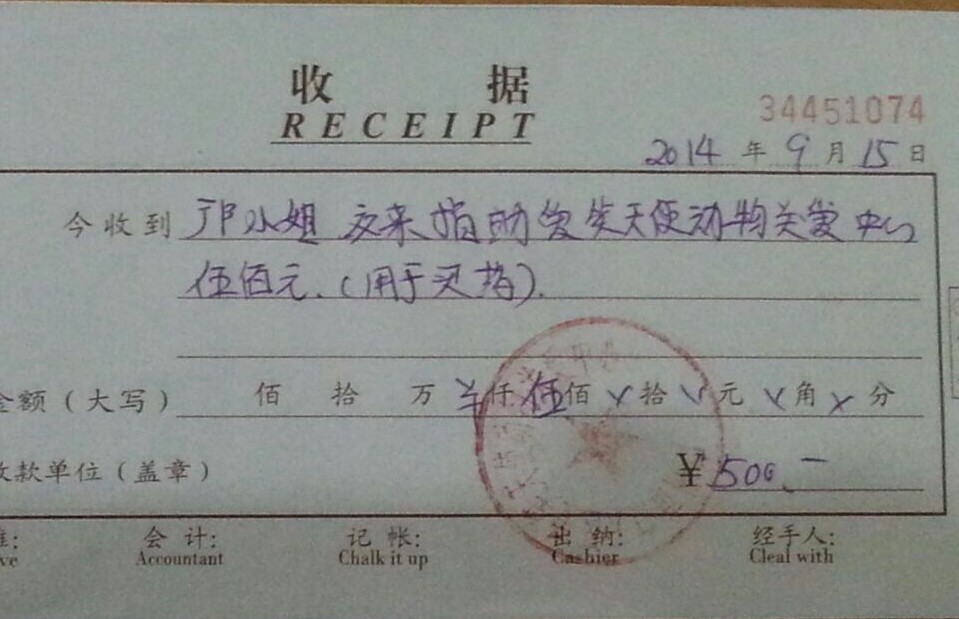 收 据
RECEIPT
34451074
2014 年 9 月 15 日
今收到 邝小姐 交来捐助 天使动物关爱中心
伍佰元.(用于买 ).
金额(大写) 佰 拾 万 ¥仟 伍佰 拾 元 角 分
收款单位(盖章) ¥500.-
会 计: 记 帐: 出 纳: 经手人:
Accountant Chalk it up Cashier Cleal with